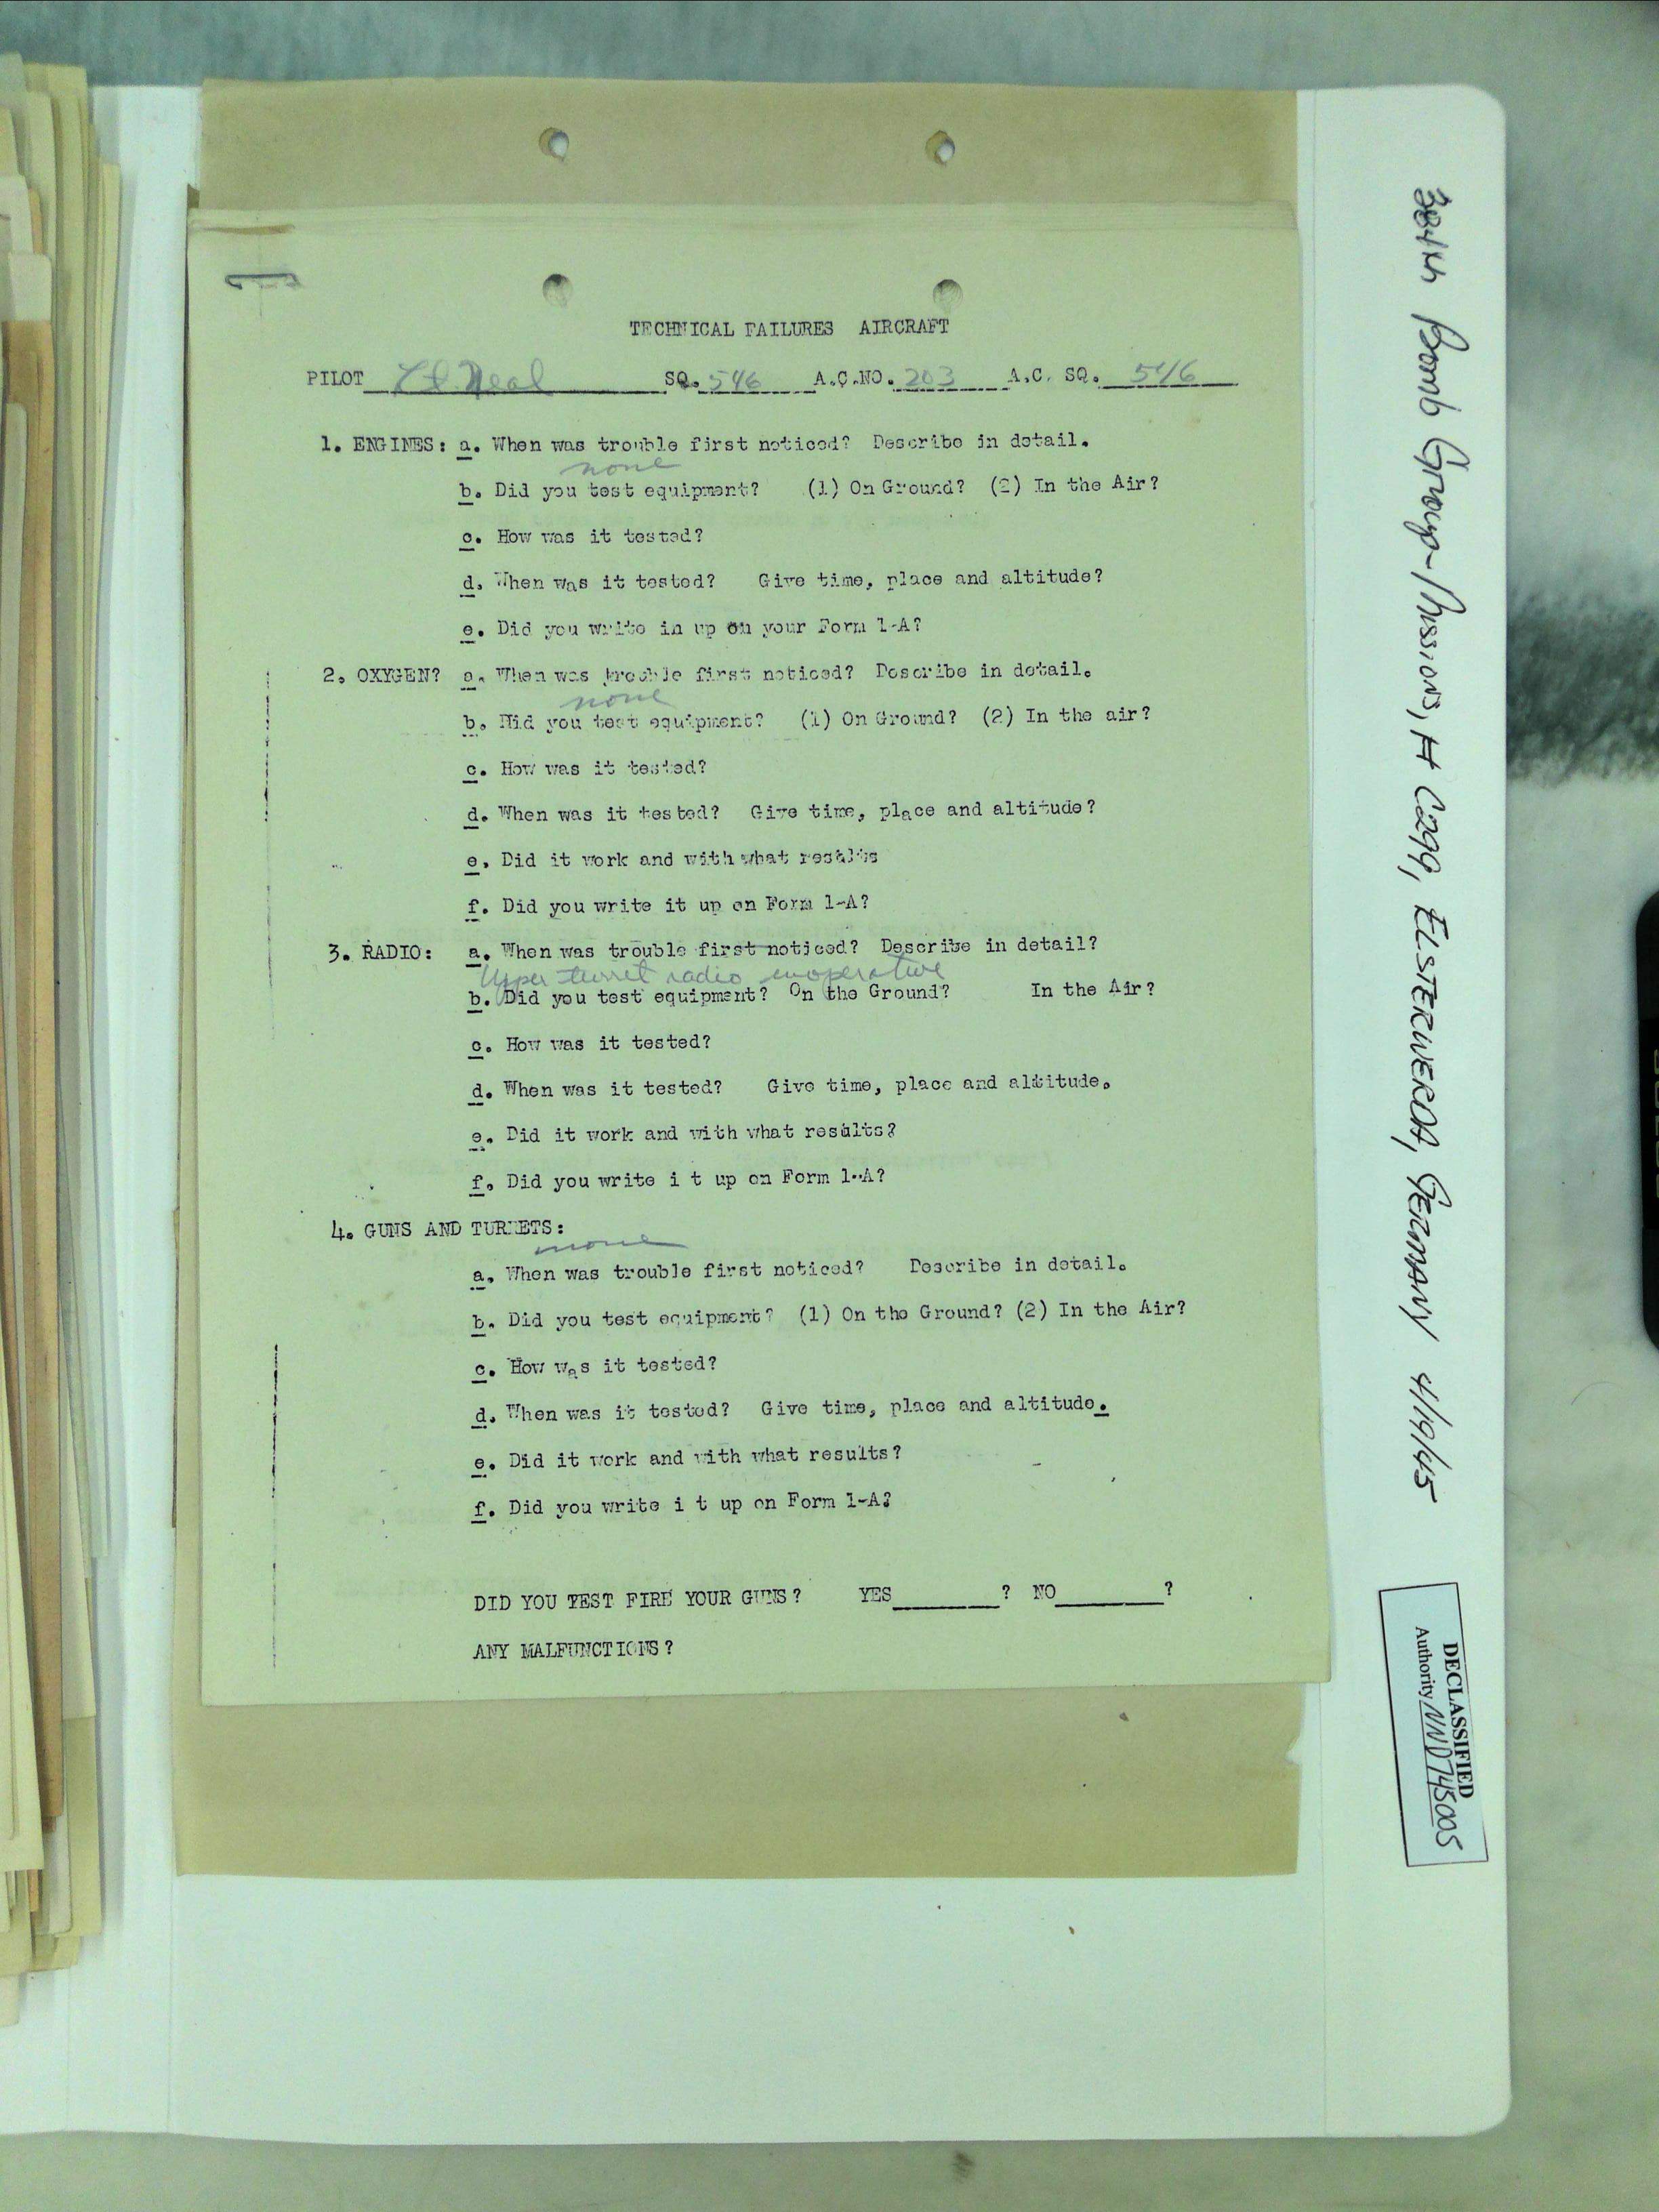 TECHNICAL FAILURES AIRCRAFT
PILOT Lt. Neal SQ. 546 A.C.NO. 203 A.C. SQ. 546
1. ENGINES: a. When was trouble first noticed? Describe in detail.
none
b. Did you test equipment? (1) On Ground? (2) In the Air?
c. How was it tested?
d. When was it tested? Give time, place and altitude?
e. Did you write in up on your Form 1-A?
2. OXYGEN? a. When was trouble first noticed? Describe in detail.
none
b. Did you test equipment? (1) On Ground? (2) In the air?
c. How was it tested?
d. When was it tested? Give time, place and altitude?
e. Did it work and with what results
f. Did you write it up on Form 1-A?
3. RADIO: a. When was trouble first noticed? Describe in detail?
Upper turret radio inoperative
b. Did you test equipment? On the Ground? In the Air?
c. How was it tested?
d. When was it tested? Give time, place and altitude.
e. Did it work and with what results?
f. Did you write i t up on Form 1-A?
4. GUNS AND TURRETS:
none
a. When was trouble first noticed? Describe in detail.
b. Did you test equipment? (1) On the Ground? (2) In the Air?
c. How was it tested?
d. When was it tested? Give time, place and altitude.
e. Did it work and with what results?
f. Did you write i t up on Form 1-A?
DID YOU TEST FIRE YOUR GUNS? YES ? NO ?
ANY MALFUNCTIONS?
384th Bomb Group-Mission, # 299, ELSTERWERDA, GERMANY 4/19/45
DECLASSIFIED
Authority NND745005